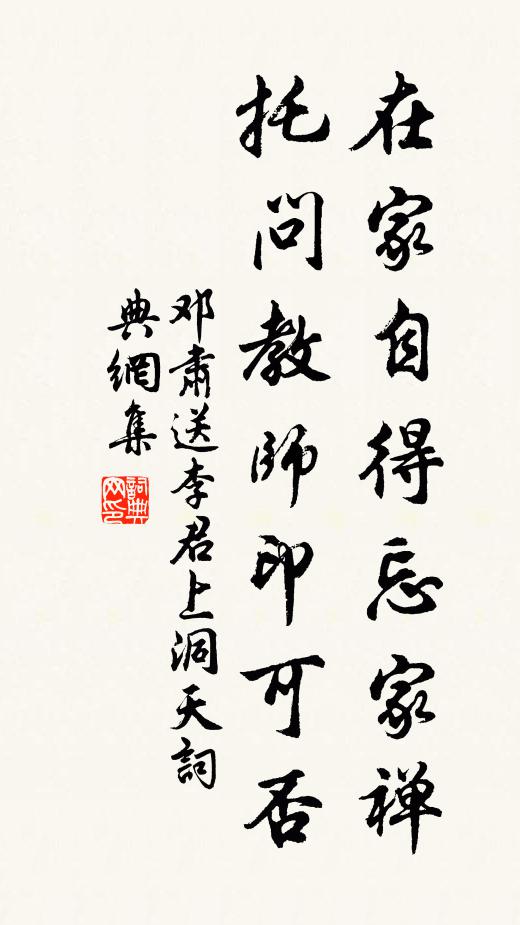 在家自得忘家禅
托问教師印可否
邓肃送李君上洞天詞
典網集
詞典
网印